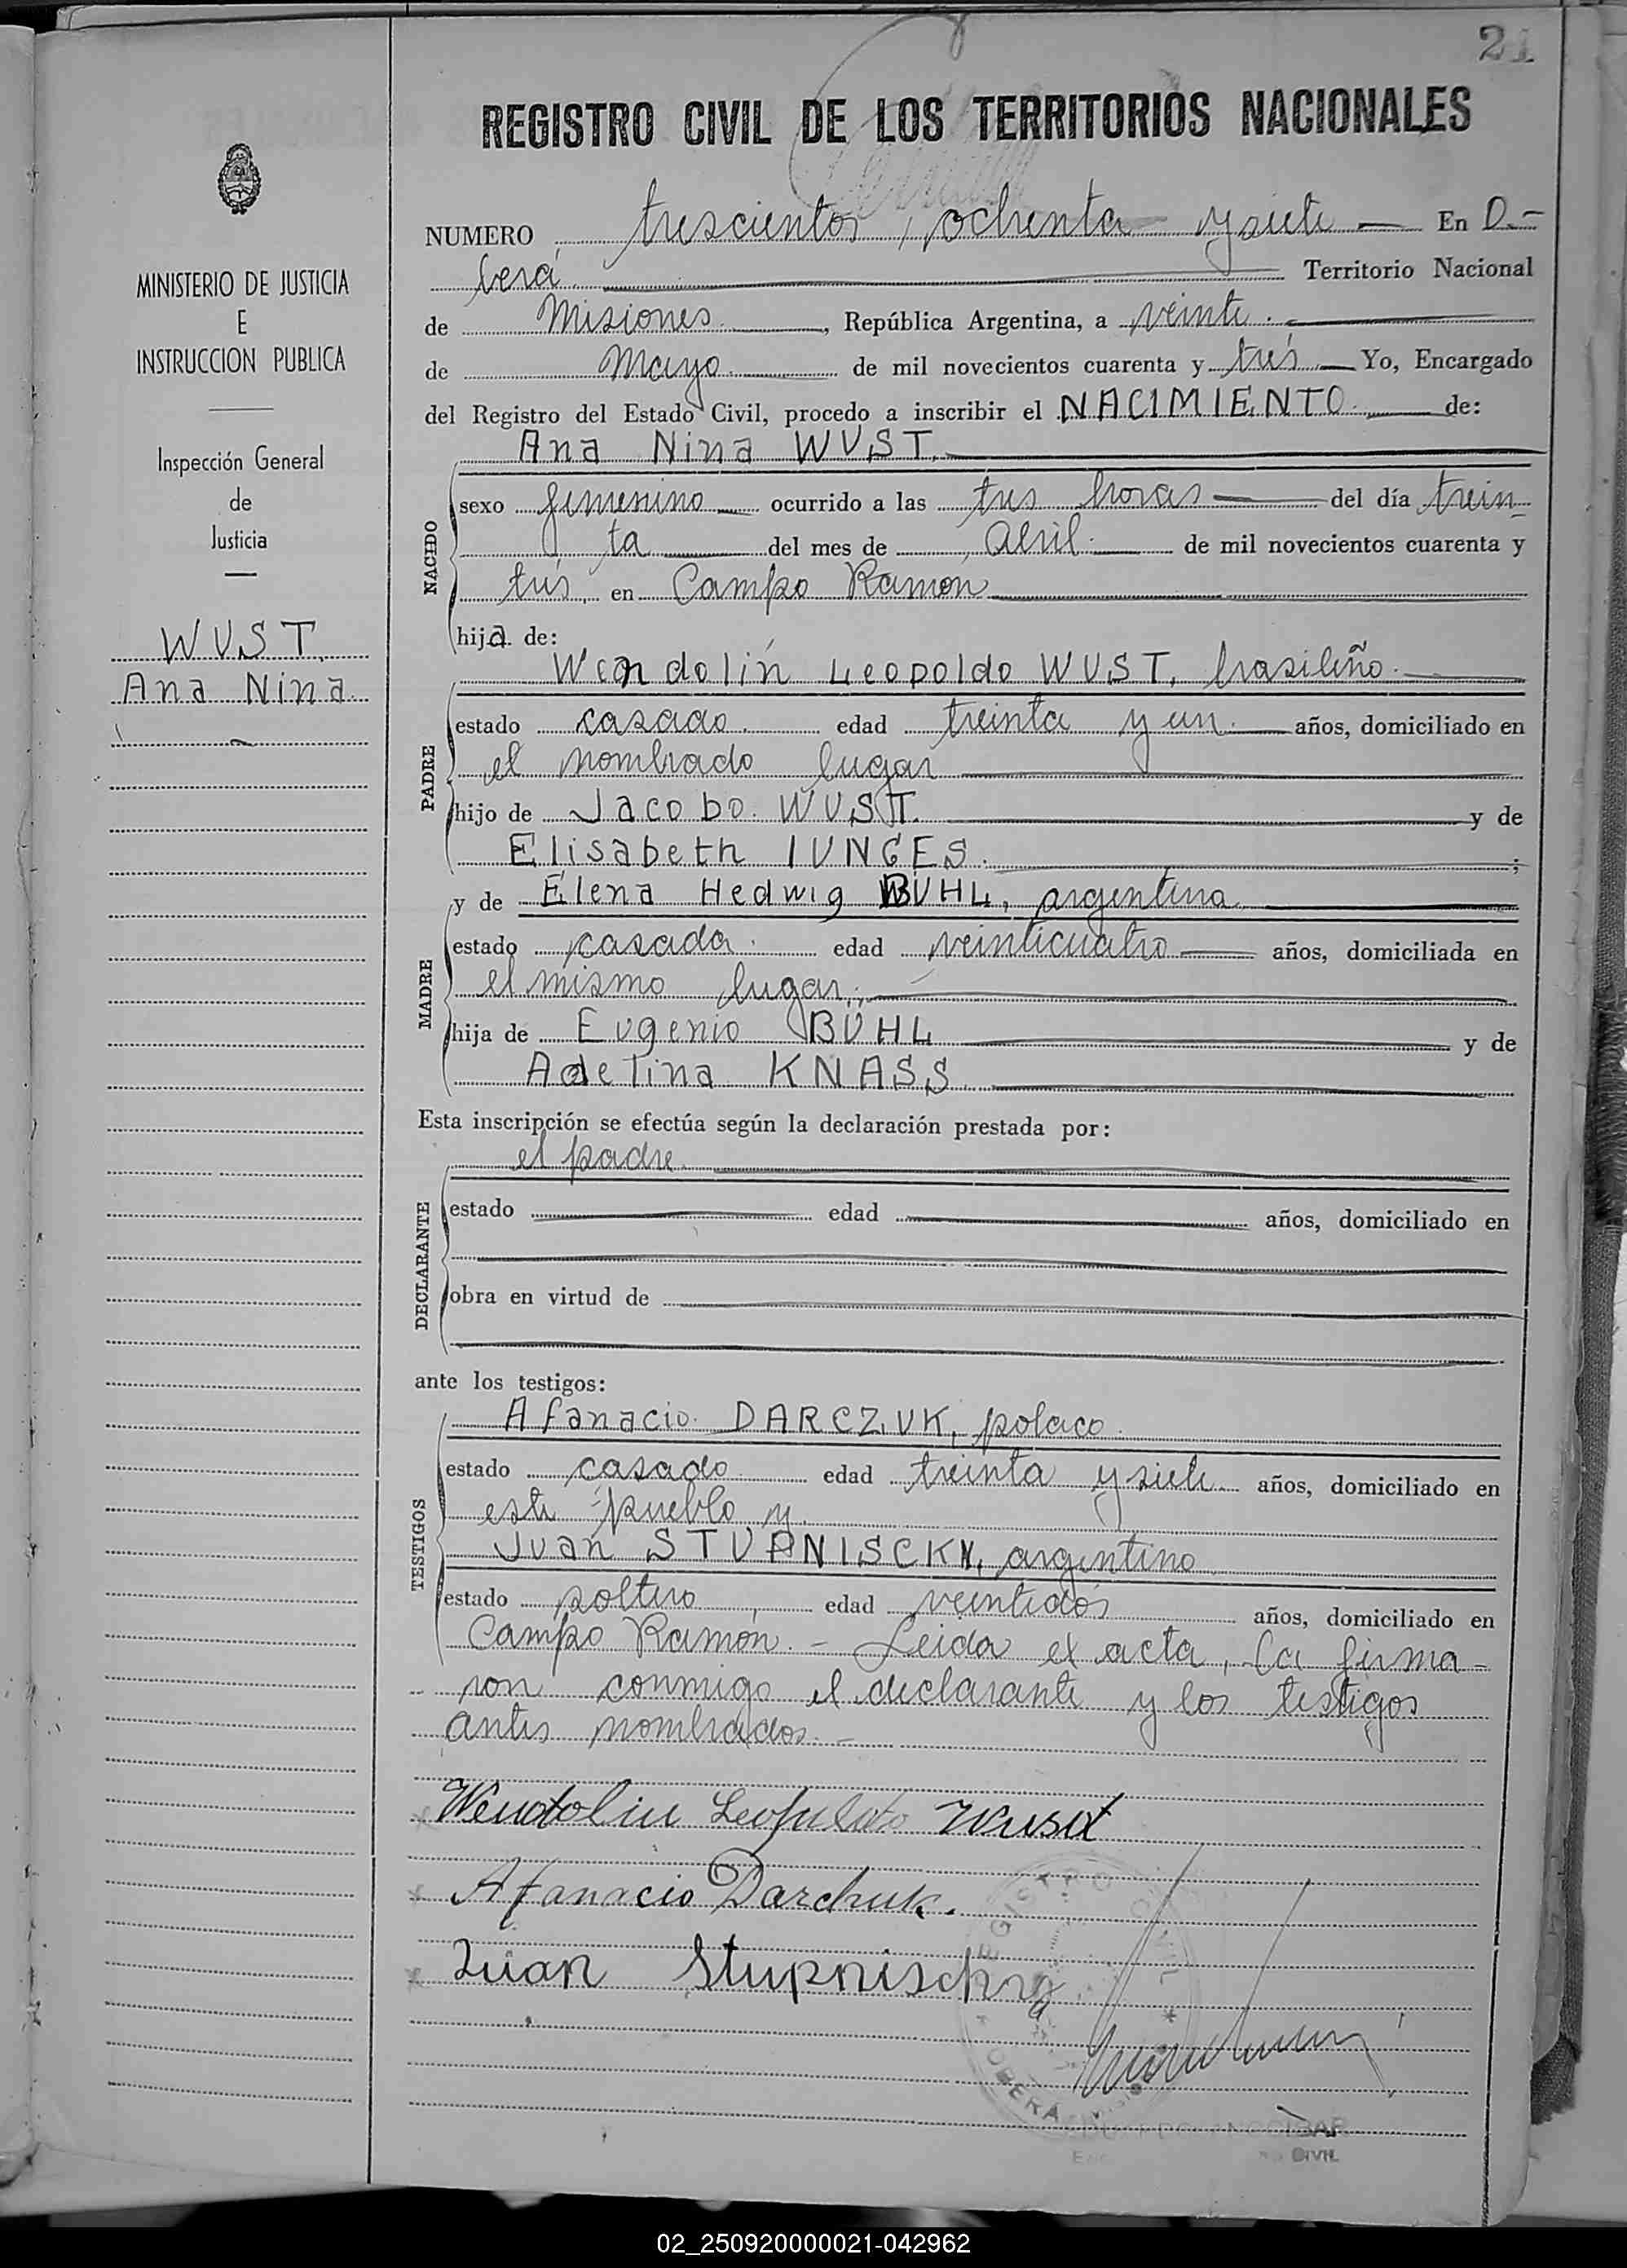 21
REGISTRO CIVIL DE LOS TERRITORIOS NACIONALES
NUMERO trescientos ochenta y siete — En O.-
berá Territorio Nacional
de Misiones, República Argentina, a veinte.
de Mayo. de mil novecientos cuarenta y tres — Yo, Encargado
del Registro del Estado Civil, procedo a inscribir el NACIMIENTO. de:
Ana Nina WUST.
NACIDO
sexo femenino ocurrido a las tres horas del día trein-
ta del mes de Abril. de mil novecientos cuarenta y
trés, en Campo Ramón
hija de:
Wendolín Leopoldo WUST, brasileño.
PADRE
estado casado. edad treinta y un. años, domiciliado en
el nombrado lugar
hijo de Jacobo WUST. y de
Elisabeth IUNGES. ;
y de Elena Hedwig BUHL, argentina
MADRE
estado casada. edad veinticuatro años, domiciliada en
el mismo lugar;
hija de Eugenio BUHL y de
Adelina KNASS.
Esta inscripción se efectúa según la declaración prestada por:
el padre.
DECLARANTE
estado edad años, domiciliado en
obra en virtud de
ante los testigos:
Afanacio DARCZUK, polaco.
TESTIGOS
estado casado edad treinta y siete. años, domiciliado en
este pueblo y
Juan STUPNISCKY, argentino
estado soltero, edad veintidós años, domiciliado en
Campo Ramón. - Leida el acta, la firma-
ron conmigo el declarante y los testigos
antes nombrados. -
Wendolin Leopuldo Wust
Afanacio Darchuk.
Juan Stupnischy
REGISTRO CIVIL
OBERÁ
CIVIL
MINISTERIO DE JUSTICIA
E
INSTRUCCION PUBLICA
Inspección General
de
Justicia
WUST,
Ana Nina.
02_250920000021-042962